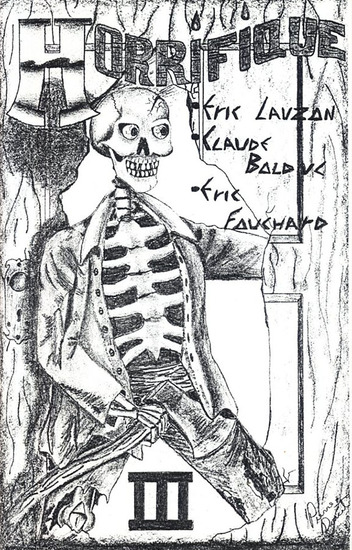 HORRIFIQUE
•ERIC LAUZON
•CLAUDE
BOLDUC
•ERIC
FOUCHARD
III